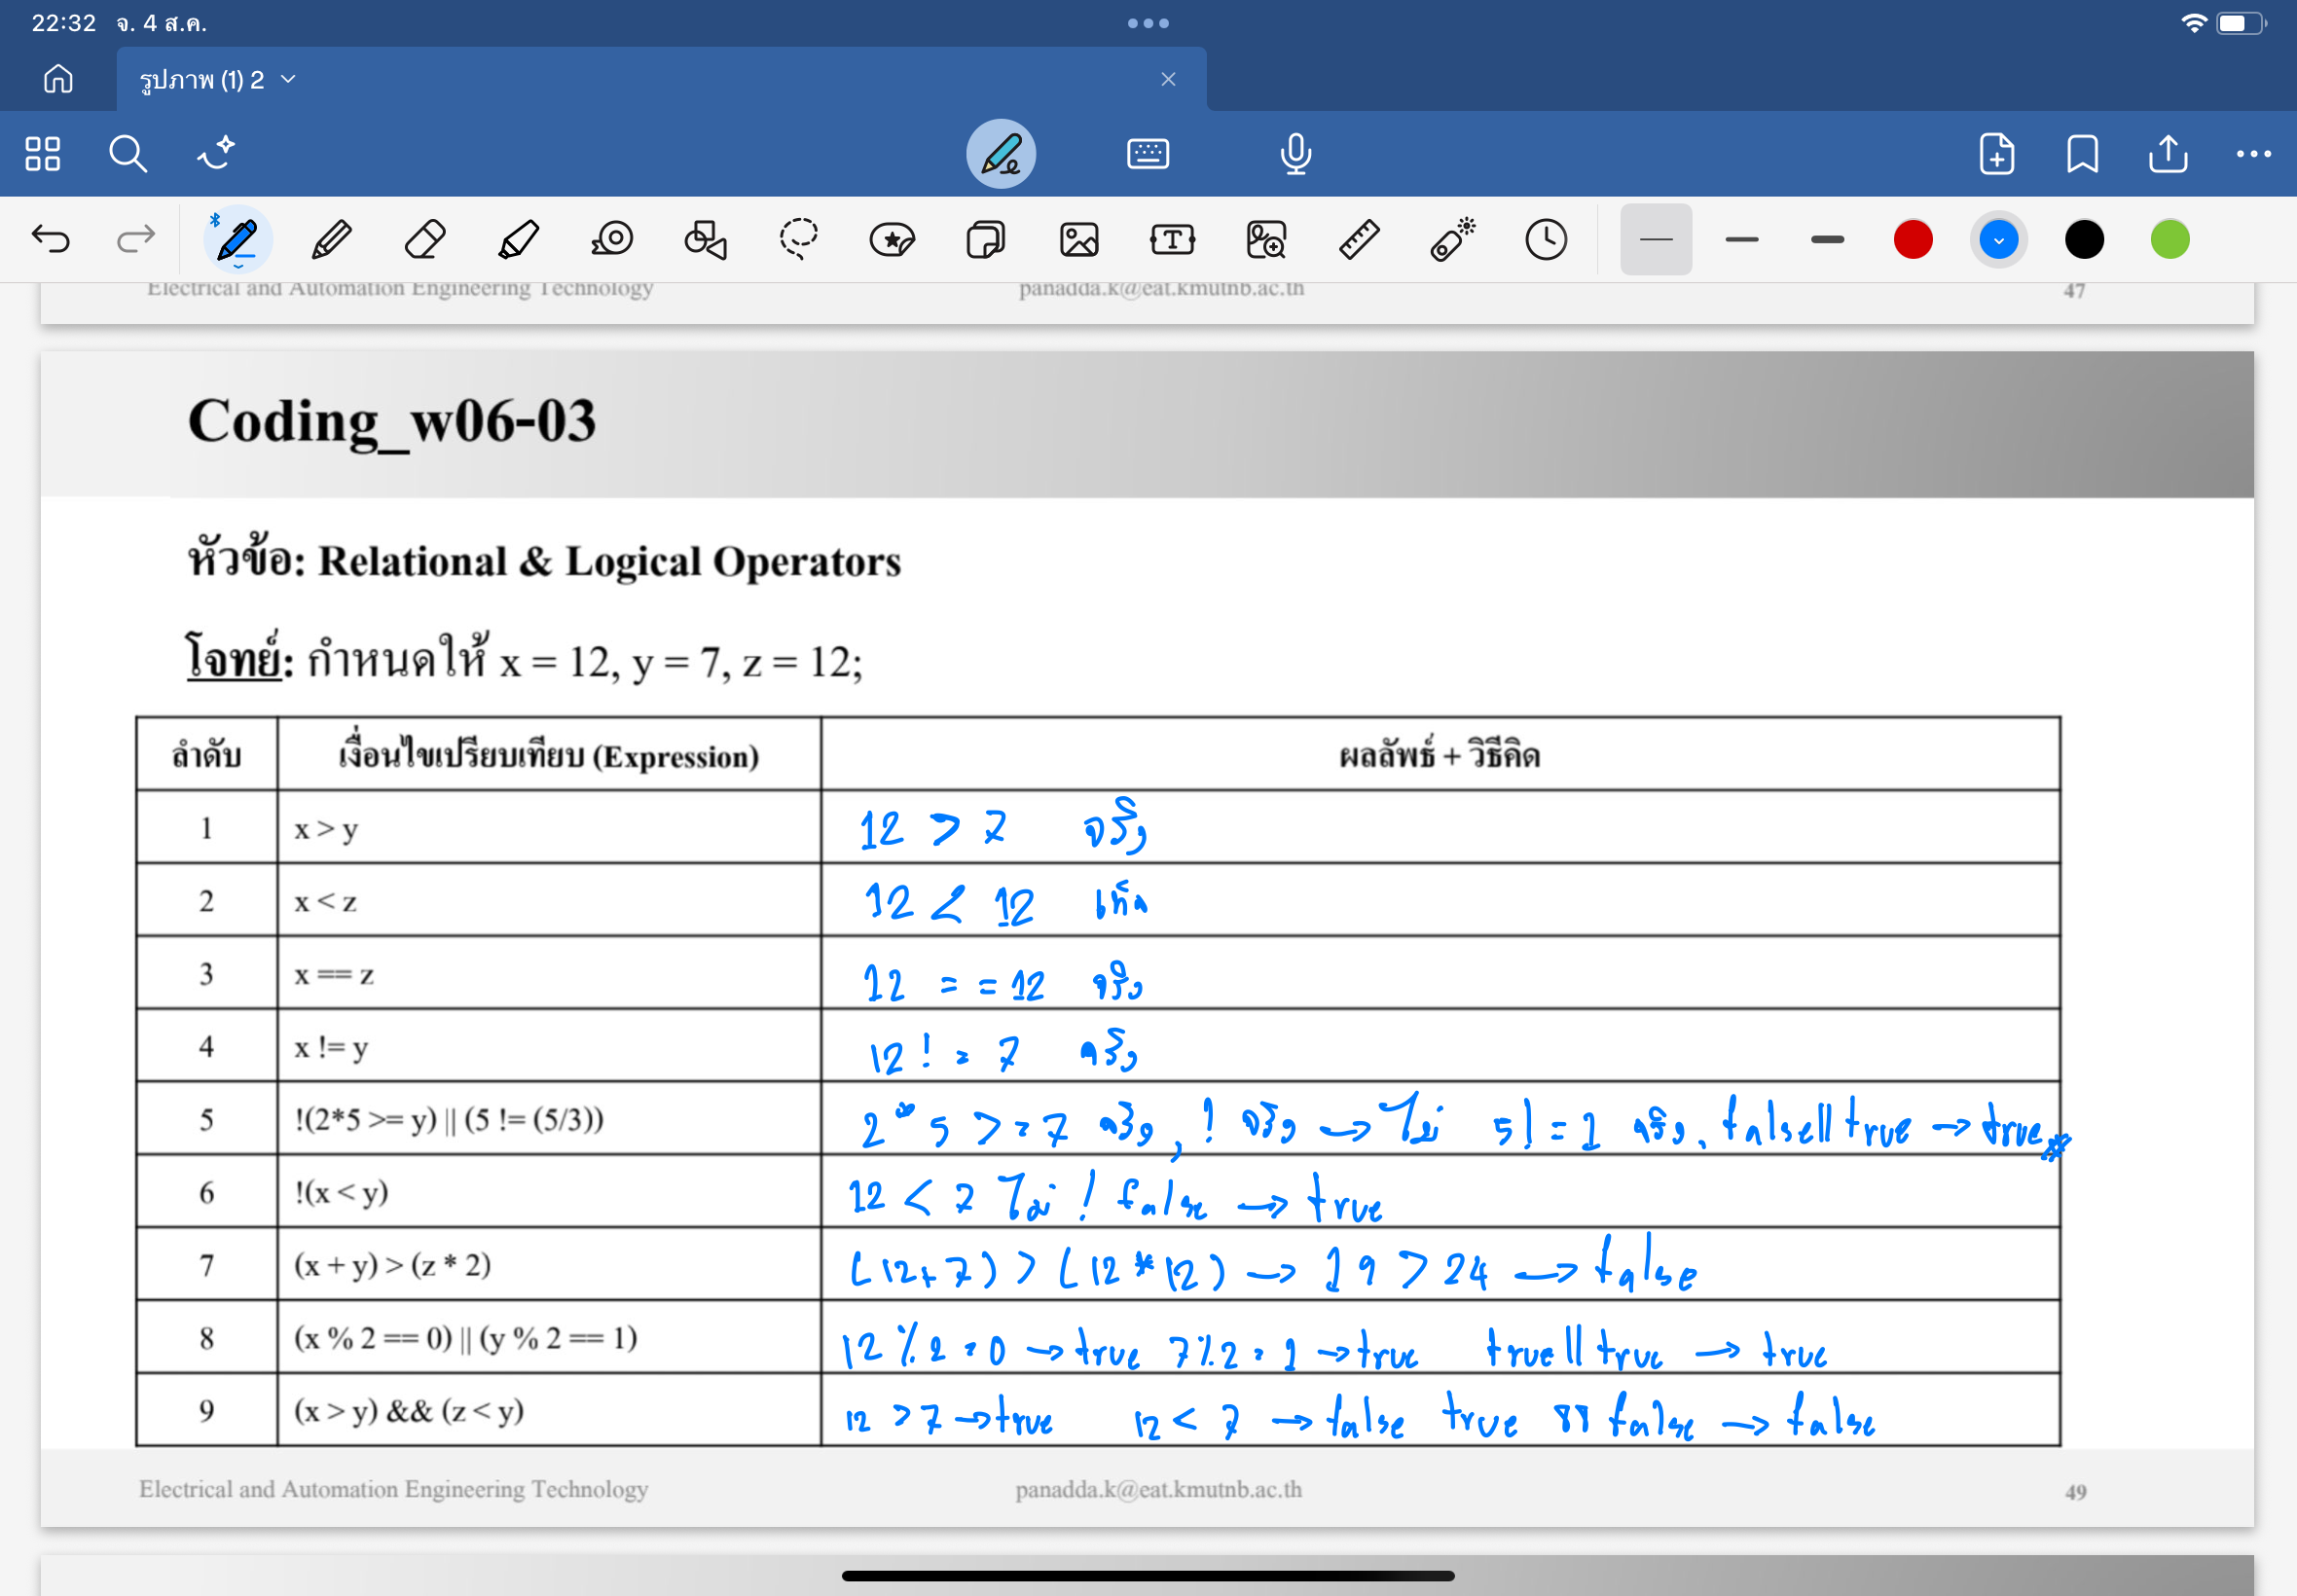 22:32 จ. 4 ส.ค.
รูปภาพ (1) 2
Electrical and Automation Engineering Technology panadda.k@eat.kmutnb.ac.th 47
Coding_w06-03
หัวข้อ: Relational & Logical Operators
โจทย์: กำหนดให้ x = 12, y = 7, z = 12;
ลำดับ เงื่อนไขเปรียบเทียบ (Expression) ผลลัพธ์ + วิธีคิด
1 x > y 12 > 7 จริง
2 x < z 12 < 12 เท็จ
3 x == z 12 = = 12 จริง
4 x != y 12 != 7 จริง
5 !(2*5 >= y) || (5 != (5/3)) 2*5 >= 7 จริง, ! จริง → ไม่ 5! = 1 จริง, false || true → true
6 !(x < y) 12 < 7 ไม่ ! false → true
7 (x + y) > (z * 2) (12+7) > (12*12) → 19 > 24 → false
8 (x % 2 == 0) || (y % 2 == 1) 12 % 2 = 0 → true 7%2 = 1 → true true || true → true
9 (x > y) && (z < y) 12 > 7 → true 12 < 7 → false true && false → false
Electrical and Automation Engineering Technology panadda.k@eat.kmutnb.ac.th 49